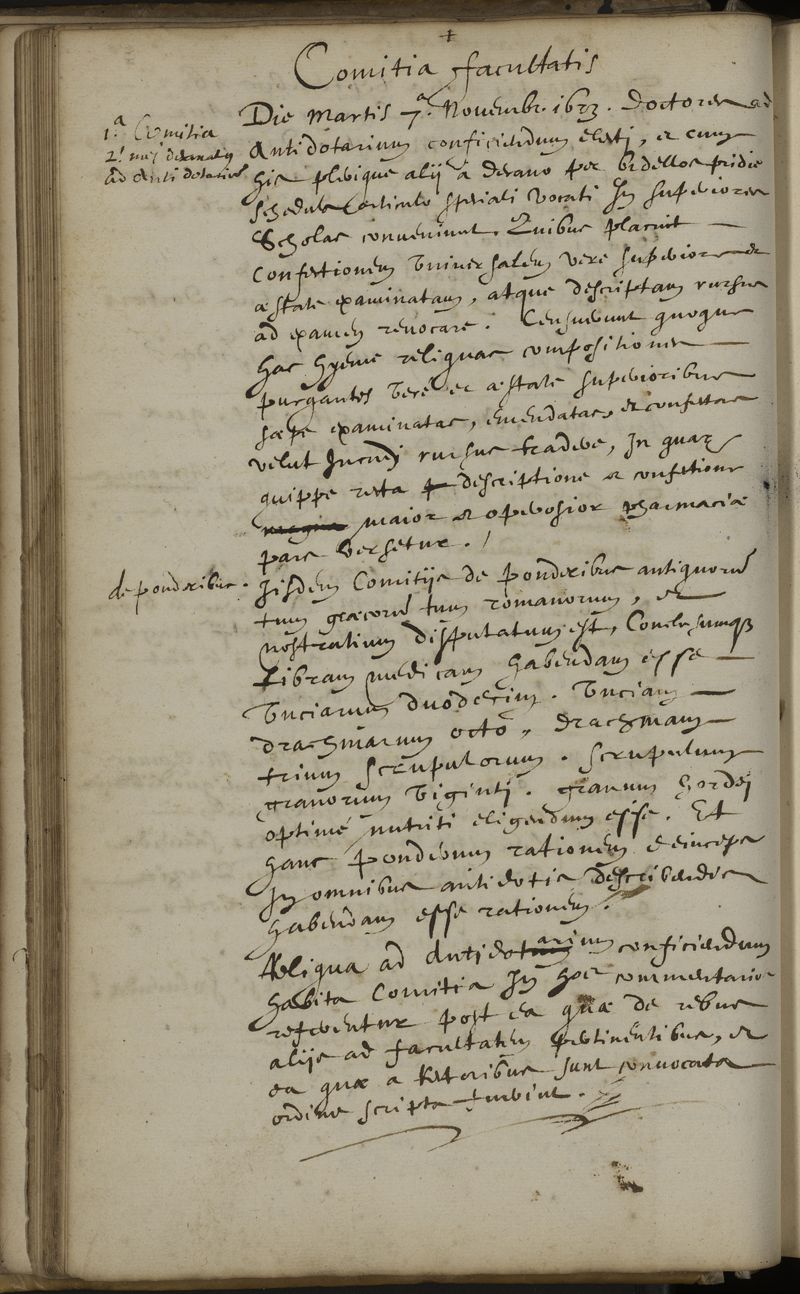 +
Comitia facultatis
Die Martis 7.a Novembr. 1623. Doctores ad
1.a Comitia
2.i mei decanatus
ad Antidotarium
Antidotarium conficiendum electi, et cum
his plerique alij a decano per bidellos pridie
schedula articulo speciali vocati In superiores
Scholas convenerunt. Quibus placuit
Confectionem Universalem vere superiore et
æstate examinatam, atque descriptam rursus
ad examen revocare. Censuerunt quoque
hac hyeme reliquas compositiones
purgantes vere et æstate superioribus
sæpe examinatas, emendatas, et confectas
velut Incudi rursus tradere, In quarum
quippe recta descriptione et confectione
maior et operosior pharmaciæ
pars versetur.
de ponderibus.
Iisdem Comitijs de ponderibus antiquorum
tum græcorum tum romanorum, et
nostratium disputatum est, Conclusumque
Libram medicam habendam esse
Unciarum duodecim. Unciam
drachmarum octo, drachmam
trium scrupulorum. scrupulum
granorum viginti. granum hordej
optime nutriti eligendum esse. Et
hanc ponderum rationem deinceps
In omnibus antidotis describendis
habendam esse rationem.
Reliqua ad Antidotarium conficiendum
habita Comitia In hoc commentario
referentur post ea quæ de rebus
alijs ad facultatem pertinentibus, et
ea quæ a Rectoribus sunt convocata
ordine scripta fuerint.